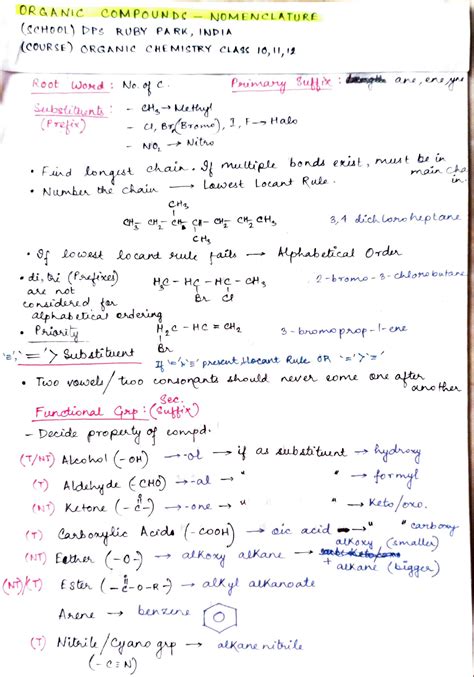 ORGANIC COMPOUNDS - NOMENCLATURE
(SCHOOL) DPS RUBY PARK, INDIA
(COURSE) ORGANIC CHEMISTRY CLASS 10, 11, 12
Root Word : No. of C. Primary Suffix : ane, ene, yne
Substituents : - CH₃ → Methyl
(Prefix) - Cl, Br(Bromo), I, F → Halo
- NO₂ → Nitro
• Find longest chain. If multiple bonds exist, must be in main chain.
• Number the chain → Lowest Locant Rule.
CH₃
CH₂
CH₃ CH₂ CH₂ CH CH₂ CH₂ CH₃ 3,4 dichloroheptane
CH₃
• If lowest locant rule fails → Alphabetical Order
• di, tri (Prefixes) are not considered for alphabetical ordering
H₃C - HC - HC - CH₃ 2-bromo-3-chlorobutane
Br Cl
• Priority H₂C - HC = CH₂ 3-bromoprop-1-ene
Br
'≡', '=' > Substituent If '=' > '≡' present, locant Rule OR '=' > '≡'
• Two vowels / two consonants should never come one after another
Sec.
Functional Grp : (Suffix)
- Decide property of compd.
(T/NT) Alcohol (-OH) → -ol → if as substituent → hydroxy
(T) Aldehyde (-CHO) → -al → " " → formyl
(NT) Ketone (-C-) → -one → " " → Keto/oxo.
O
(T) Carboxylic Acids (-COOH) → oic acid → " carboxy
(NT) Ether (-O-) → alkoxy alkane → alkoxy (smaller)
+ alkane (bigger)
(NT)/(T) Ester (-C-O-R-) → alkyl alkanoate
O
Arene → benzene
(T) Nitrile/Cyano grp → alkanenitrile
(-C≡N)